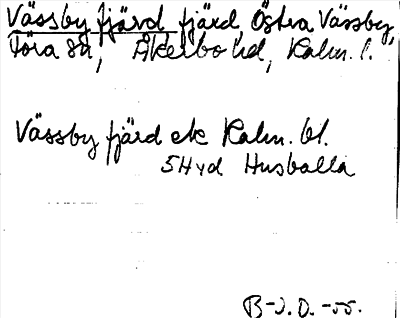 Vässby fjärd, fjärd, Östra Vässby,
Föra sn, Åkerbo hd, Kalm. l.
Vässby fjärd ek Kalm. bl.
5H vd Husballa
B-J.O. -55.